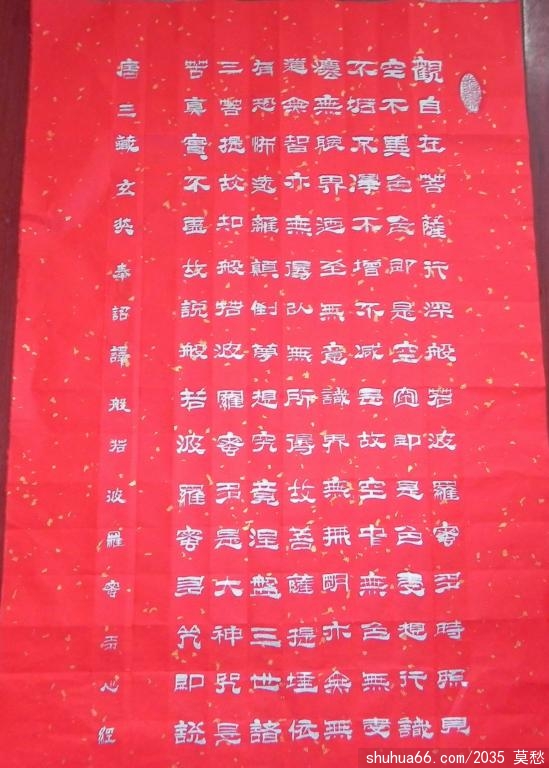 觀自在菩薩行深般若波羅蜜多時照見
空不異色色即是空空即是色受想行識
不垢不淨不增不減是故空中無色無受
無眼界迺至無意識界無無明亦無無
道無智亦無得以無所得故菩薩提埵依
有恐怖遠離顛倒夢想究竟涅盤三世諸
三菩提故知般若波羅蜜多是大神咒是
苦真實不虛故說般若波羅蜜多咒即說
唐三藏玄奘奉詔譯般若波羅蜜多心經
shuhua66.com/2035 莫愁